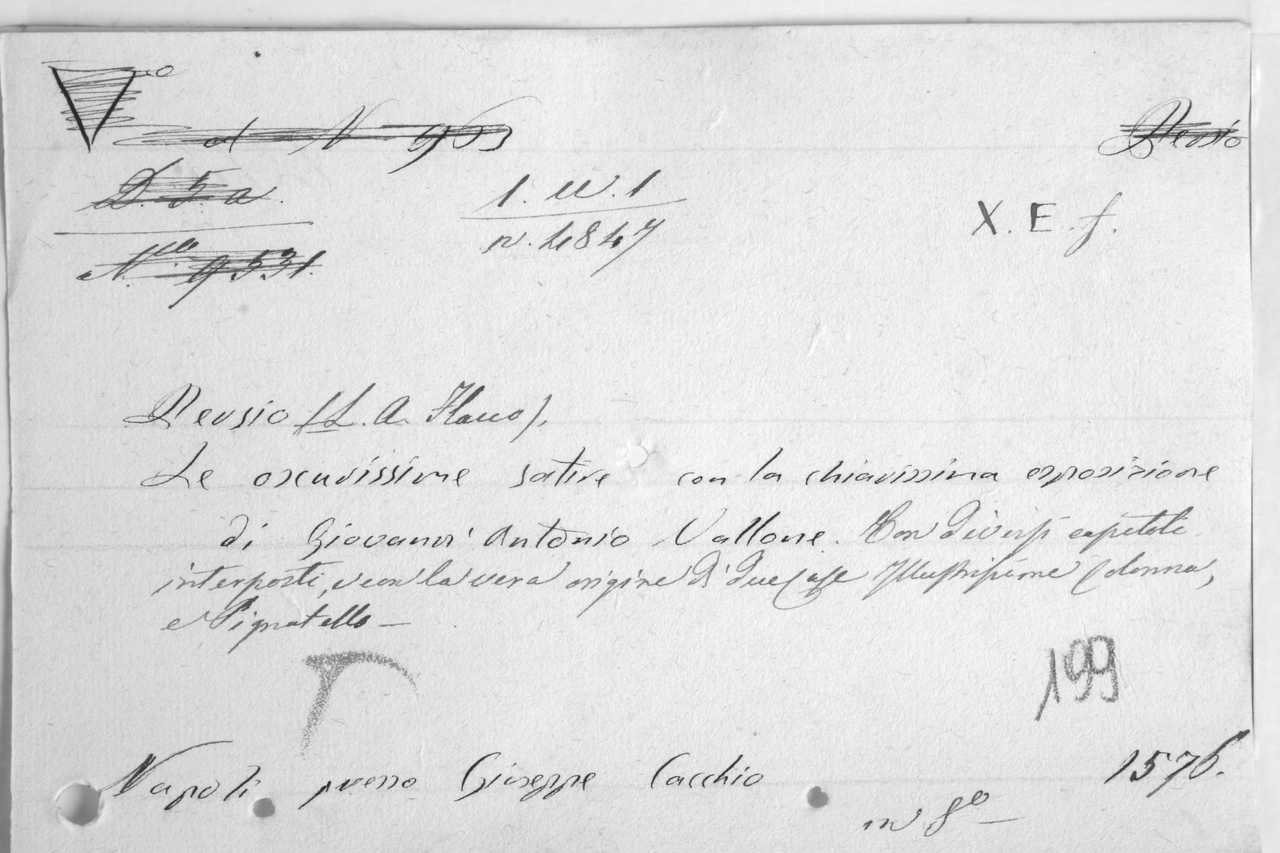 d N 963
Persio
D. 5. a.
N.ro 9531.
1. w. 1
n. 4847
X. E. f.
Persio (L. A. Flacco).
Le oscurissime satire con la chiarissima esposizione
di Giovanni Antonio Vallone. Con diversi capitoli
interposti, e con la vera origine di due Case Illustrissime Colonna,
e Pignatello —
199
Napoli presso Giuseppe Cacchio 1576.
in 8º —